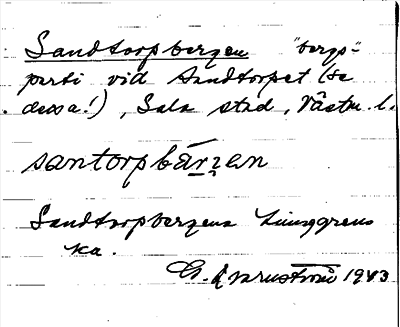 Sandtorpbergen "bergs"-
parti vid Sandtorpet (se
dessa!), Sala stad, Västm. l.
santorpbárʒen
Sandtorpbergens Ljunggrens
ka.
G. 1943